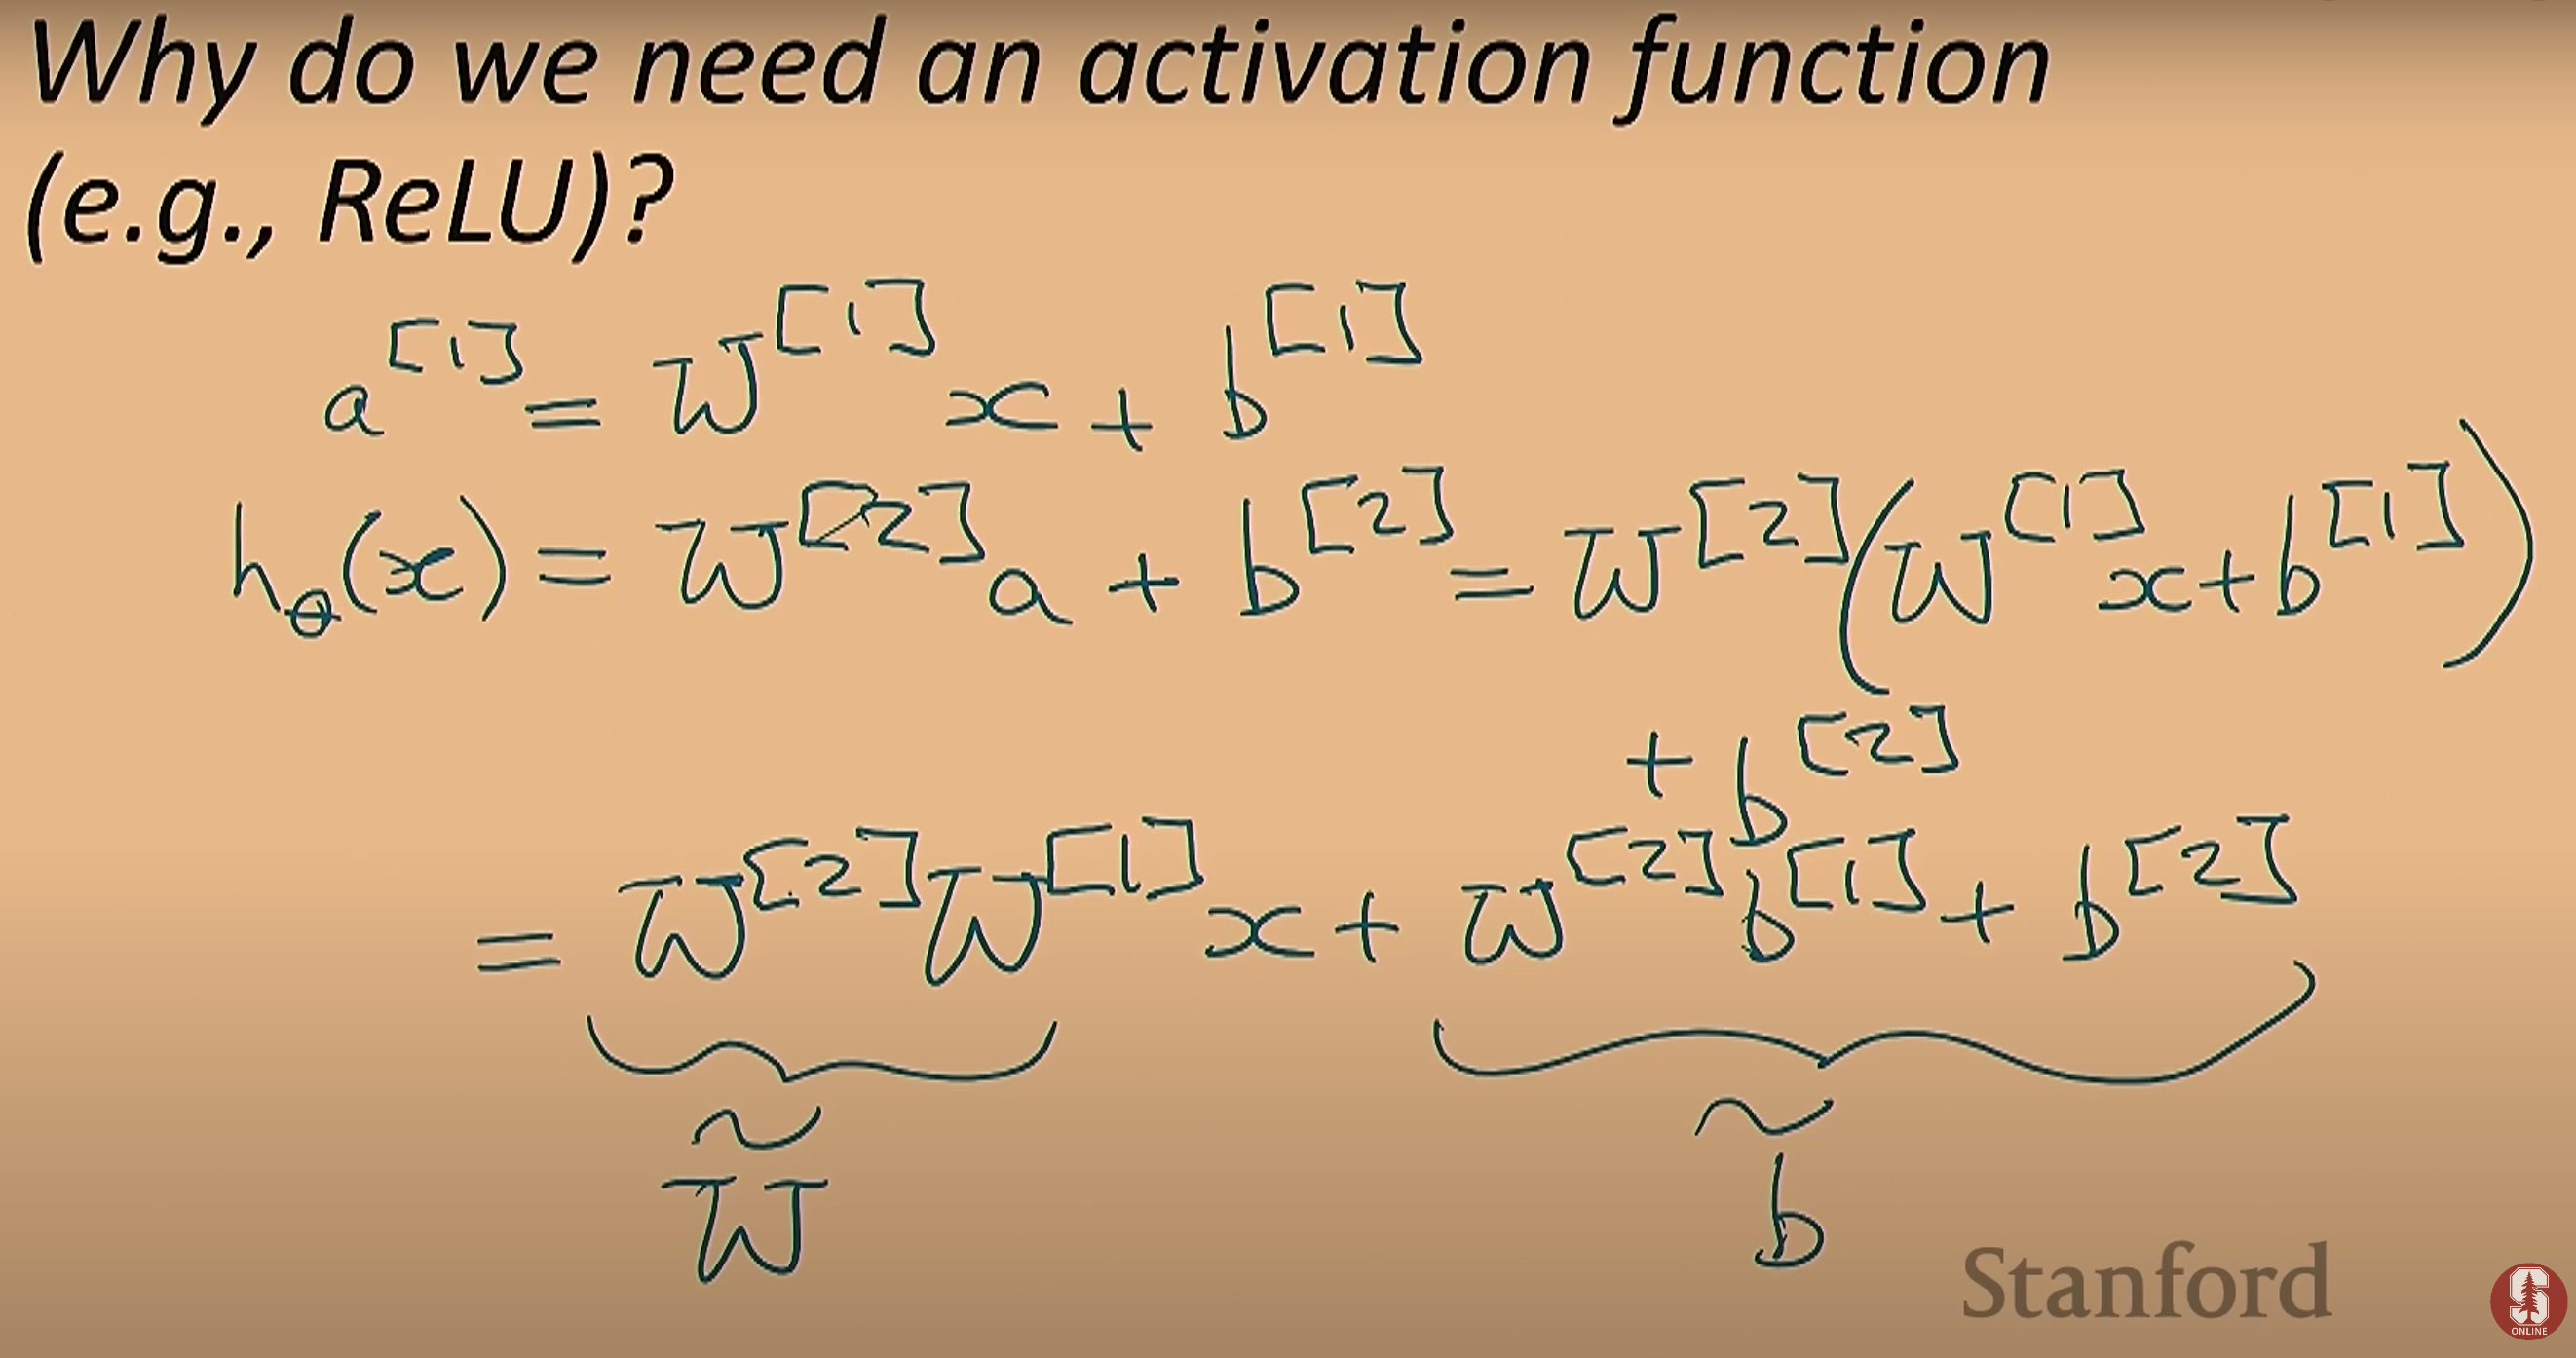 Why do we need an activation function
(e.g., ReLU)?
a^[1] = W^[1] x + b^[1]
h_θ(x) = W^[2] a + b^[2] = W^[2] (W^[1] x + b^[1])
+ b^[2]
= W^[2] W^[1] x + W^[2] b^[1] + b^[2]
W̃ b̃
Stanford
S
ONLINE